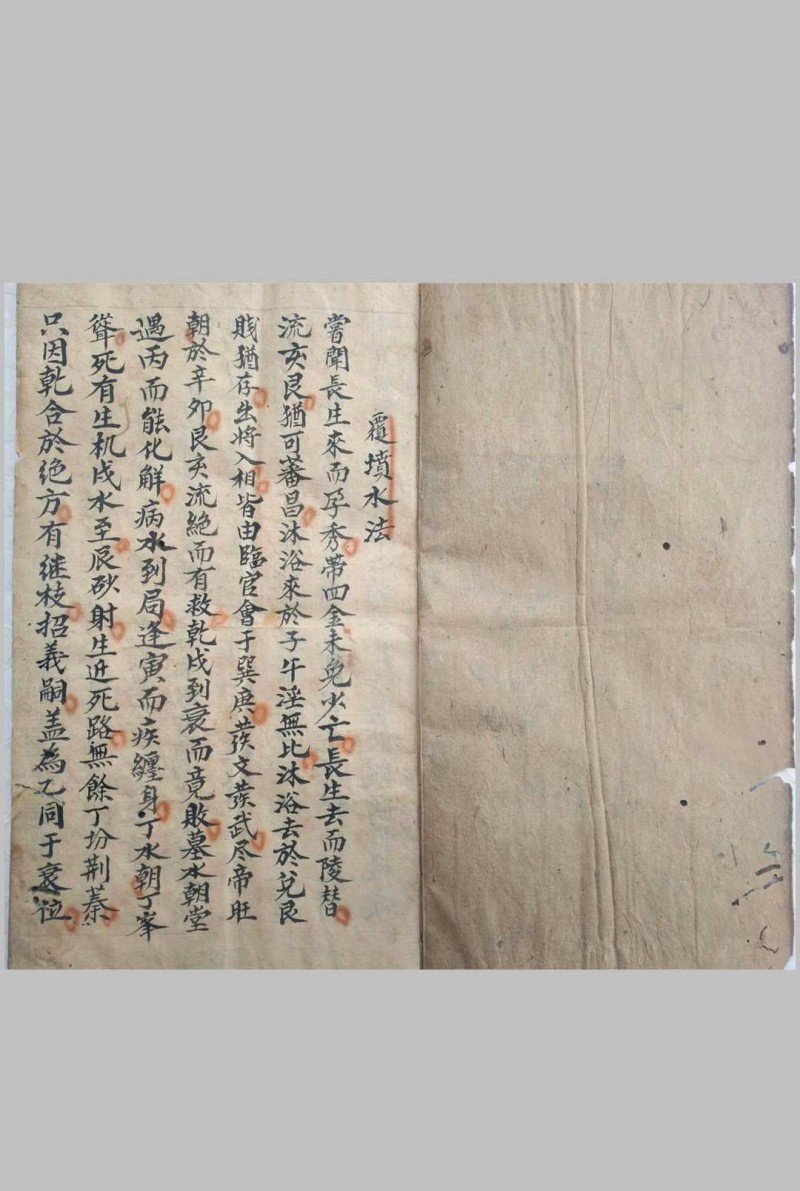 覆墳水法
嘗聞長生來而孕秀帶四金未免少亡長生去而陵替
流亥艮猶可蕃昌沐浴來於子午淫無比沐浴去於兌艮
賎猶存出將入相皆由臨官會于巽庚發文發武尽帝旺
朝於辛卯艮亥流絶而有救乾戌到衰而竟敗墓水朝堂
遇丙而能化解病水到局逢寅而疾纏身丁水朝丁峯
聳死有生机戌水至辰砂射生近死路無餘丁坋荆蓁
只因乾合於绝方有继枝招義嗣盖為乙同于衰位